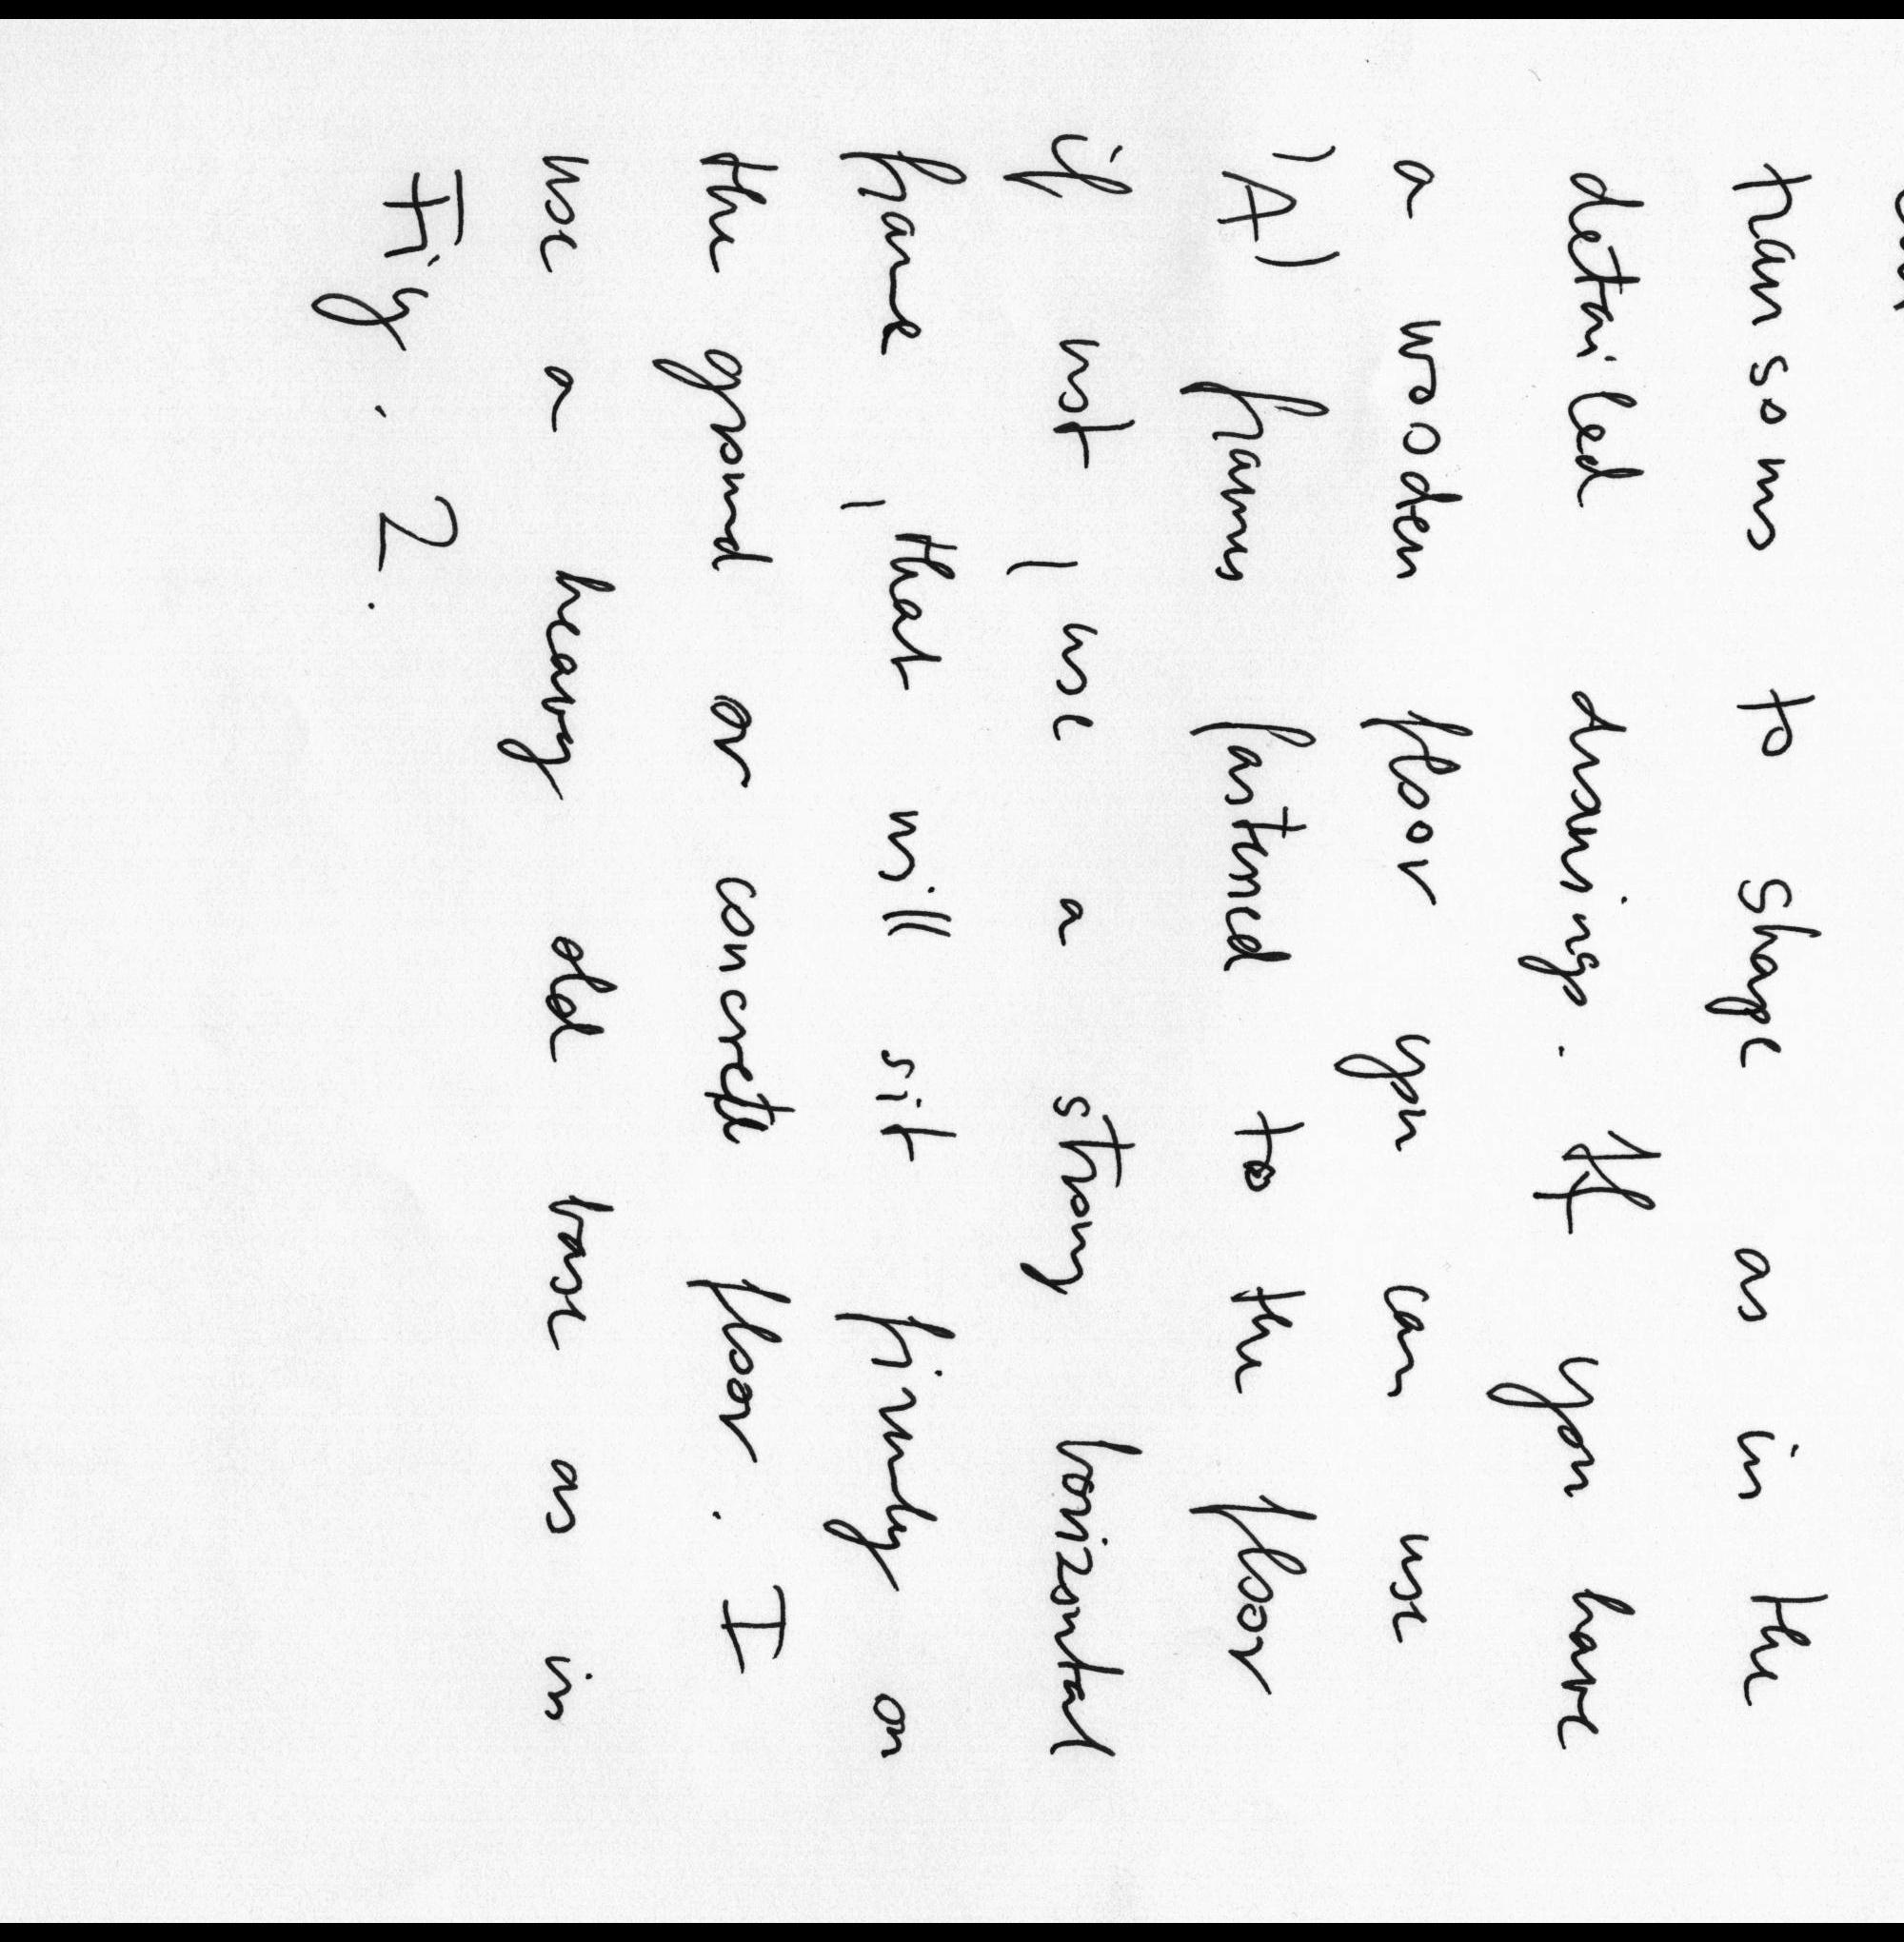 transoms to shape as in the
detailed drawings. If you have
a wooden floor you can use
'A' frames fastened to the floor
if not, use a strong horizontal
frame, that will sit firmly on
the ground or concrete floor. I
use a heavy old base as in
Fig. 2.